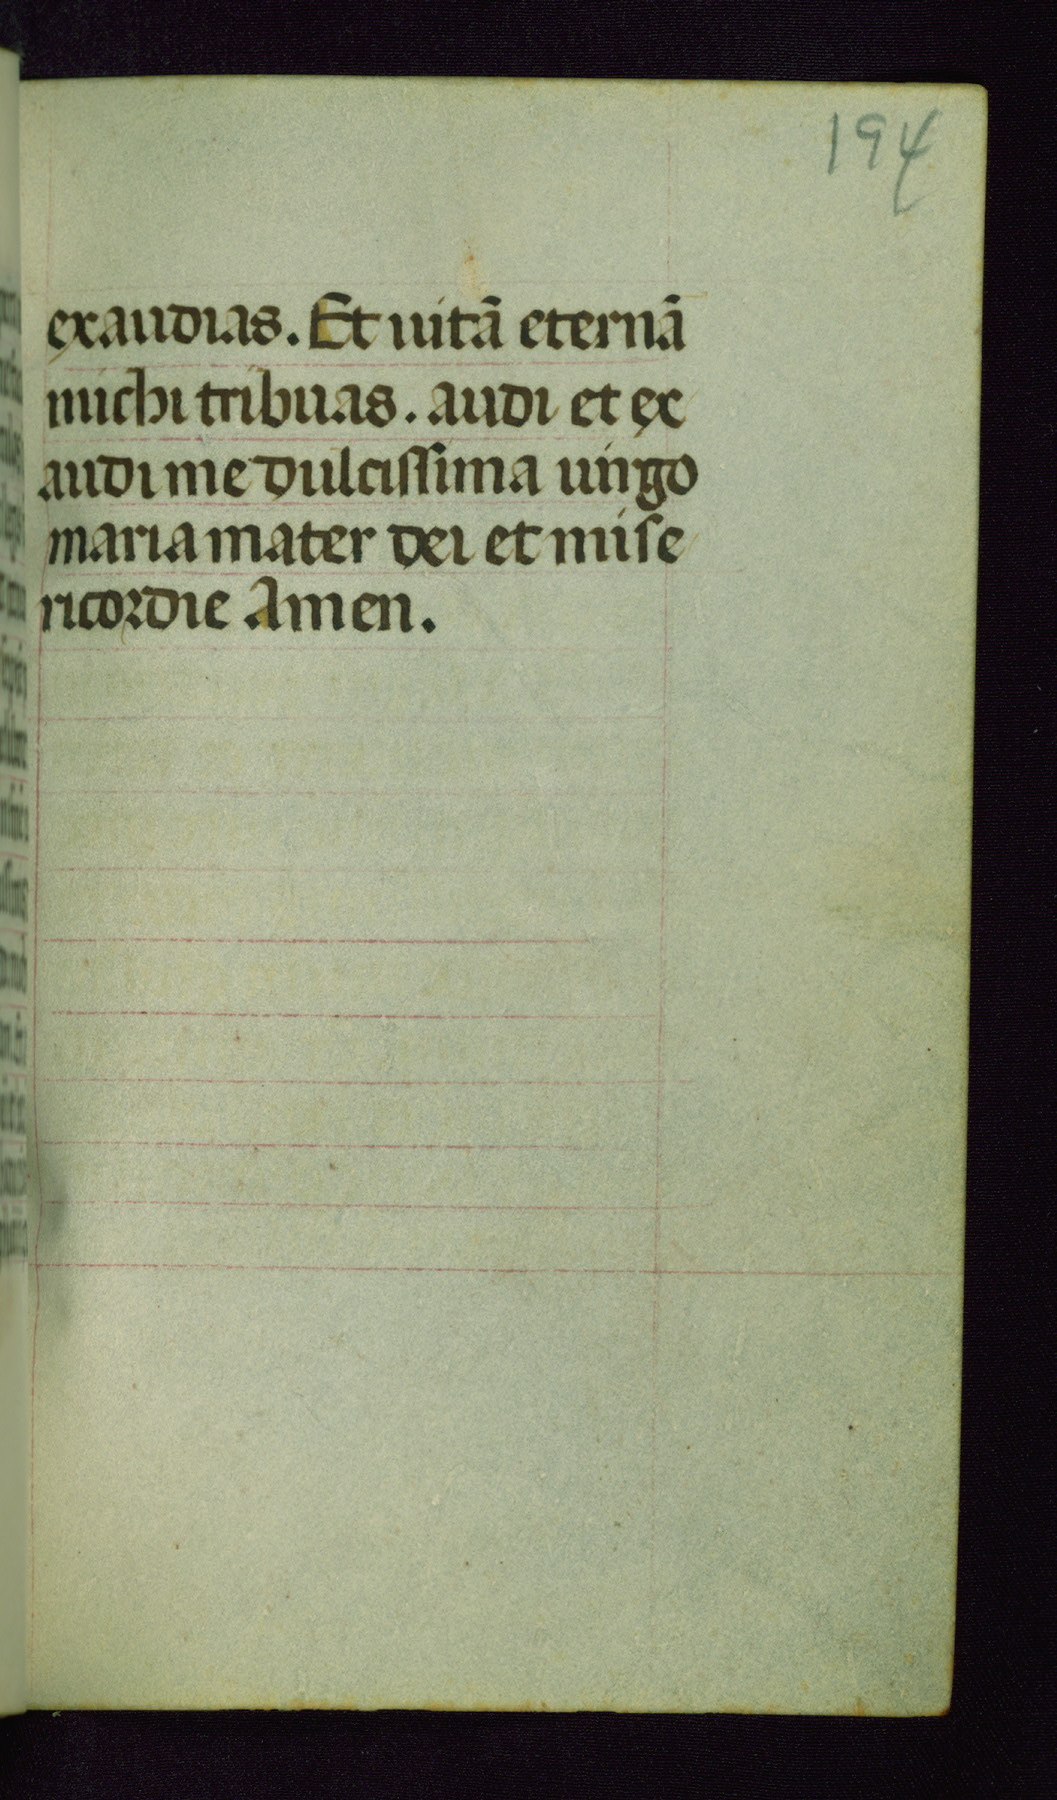 194
exaudias. Et uitā eternā
michi tribuas. audi et ex
audi me dulcissima uirgo
maria mater dei et mise
ricordie Amen.